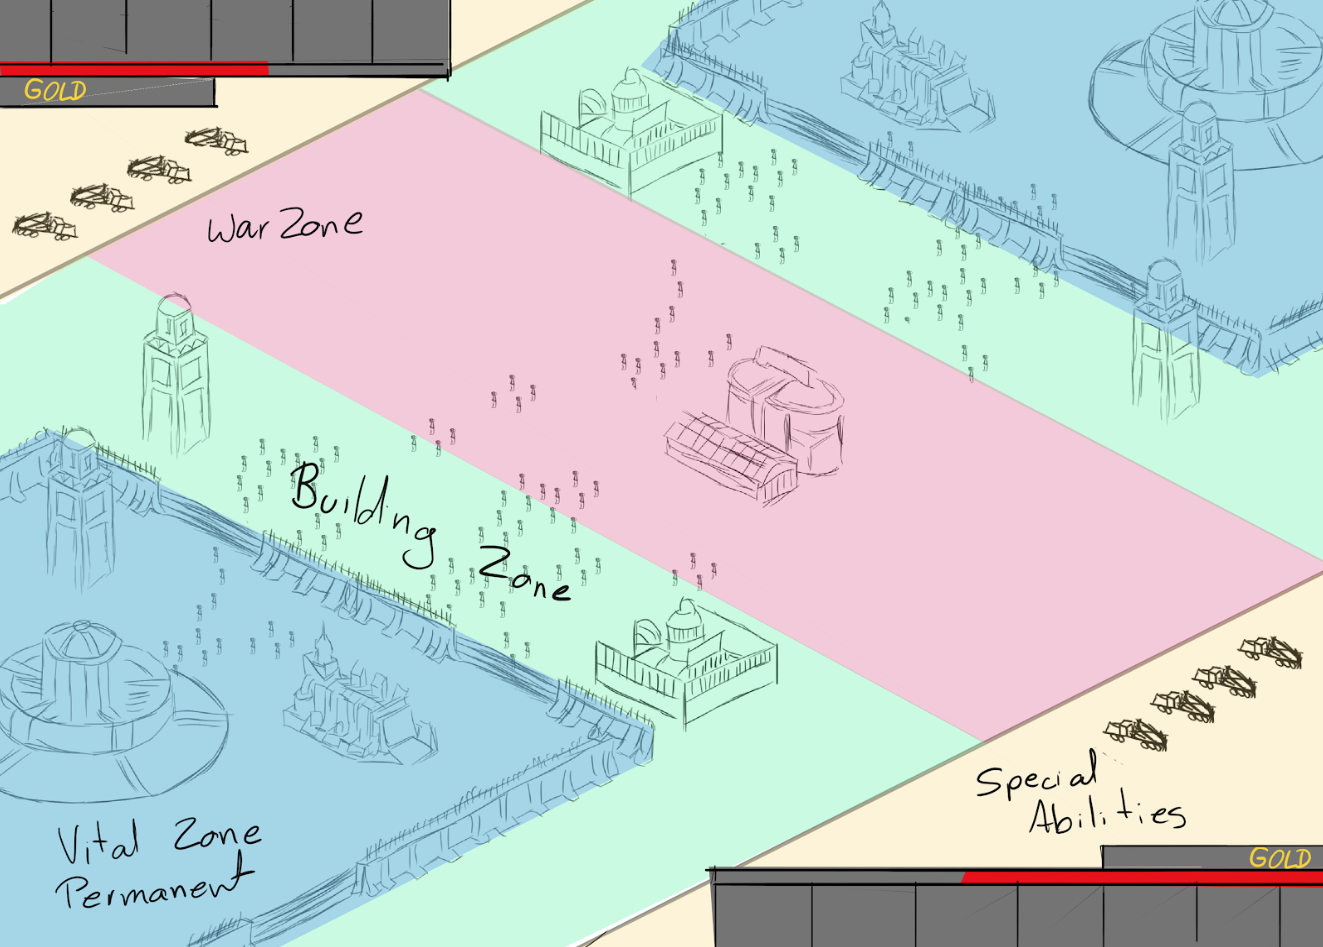 GOLD
War Zone
Building Zone
Special
Abilities
Vital Zone
Permanent
GOLD